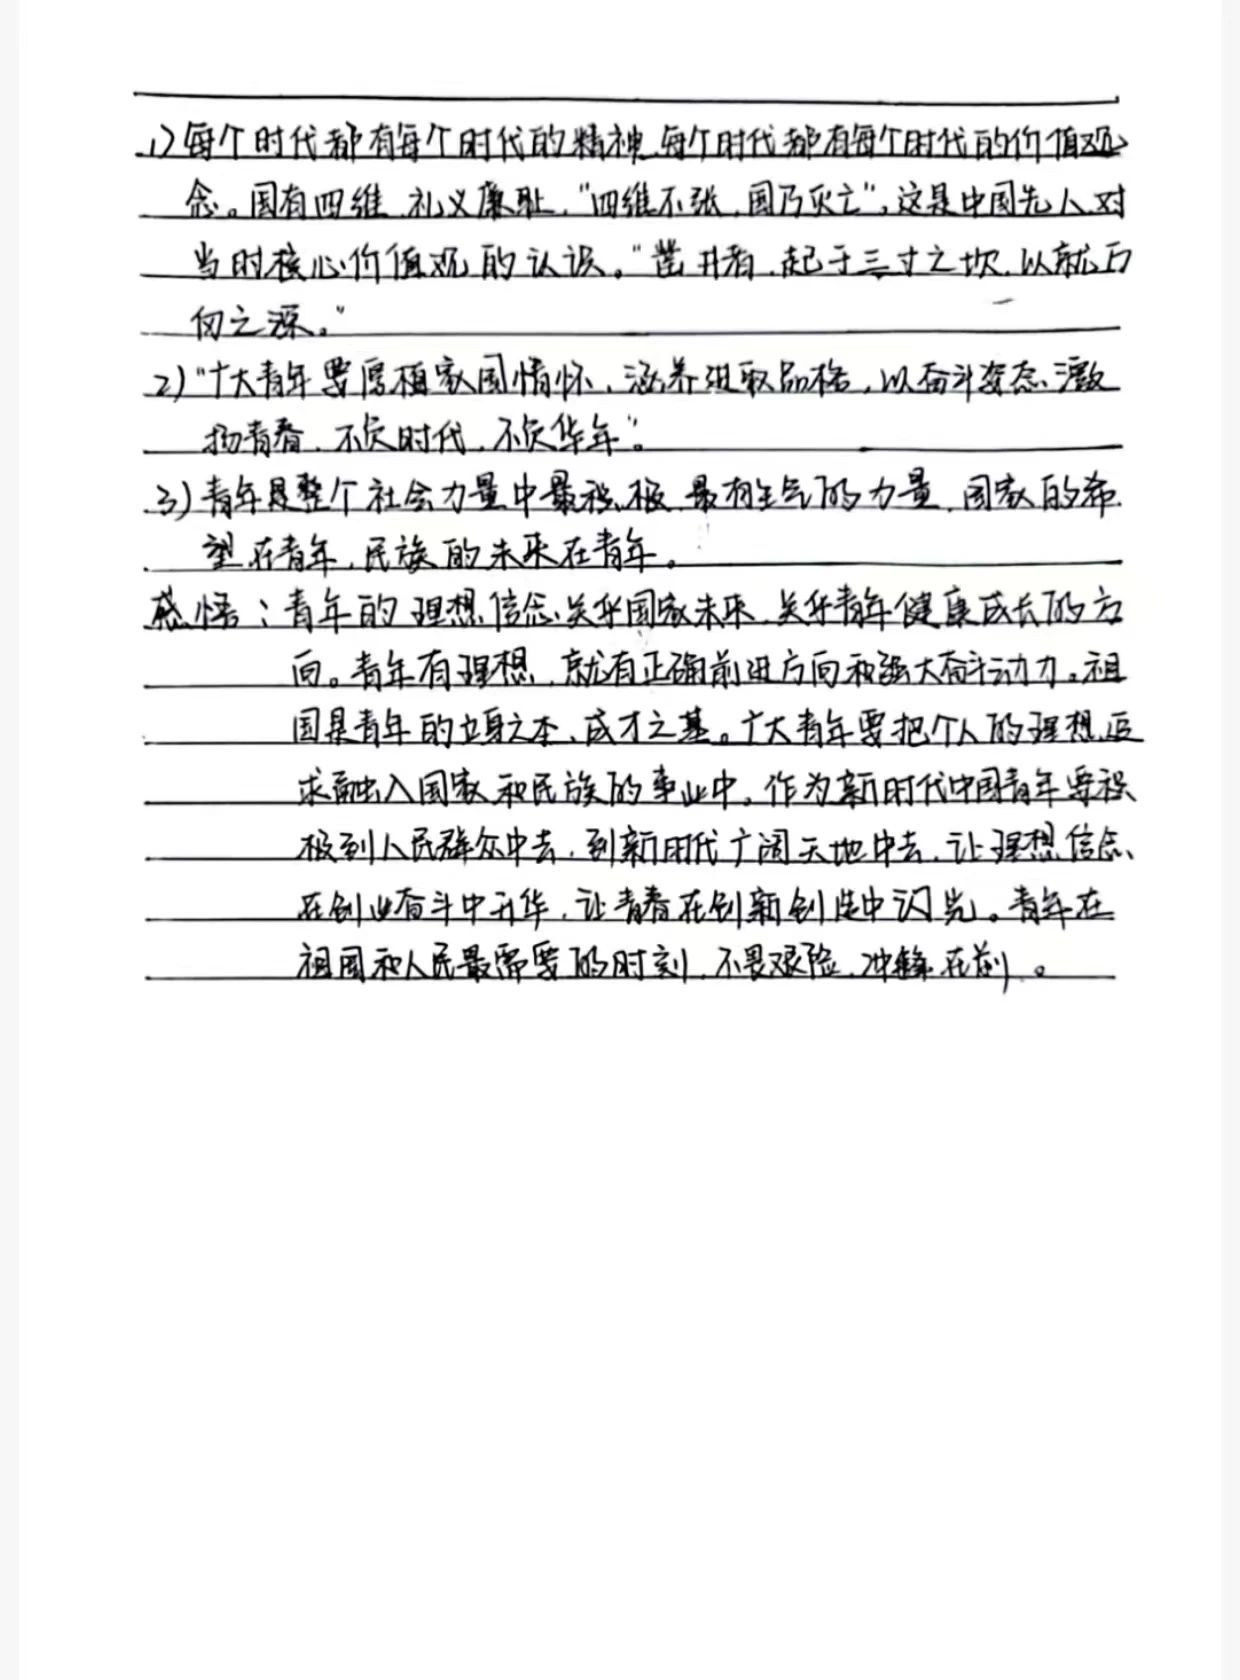 1)每个时代都有每个时代的精神,每个时代都有每个时代的价值观
念。国有四维,礼义廉耻,"四维不张,国乃灭亡",这是中国先人对
当时核心价值观的认识。"凿井者,起于三寸之坎,以就万
仞之深。"
2)"广大青年要厚植家国情怀,涵养进取品格,以奋斗姿态激
扬青春,不负时代,不负华年"。
3)青年是整个社会力量中最积极,最有生气的力量,国家的希
望在青年,民族的未来在青年。
感悟:青年的理想信念关乎国家未来,关乎青年健康成长的方
向。青年有理想,就有正确前进方向和强大奋斗动力。祖
国是青年的立身之本、成才之基。广大青年要把个人的理想追
求融入国家和民族的事业中。作为新时代中国青年要积
极到人民群众中去,到新时代广阔天地中去,让理想信念
在创业奋斗中升华,让青春在创新创造中闪光。青年在
祖国和人民最需要的时刻,不畏艰险,冲锋在前。